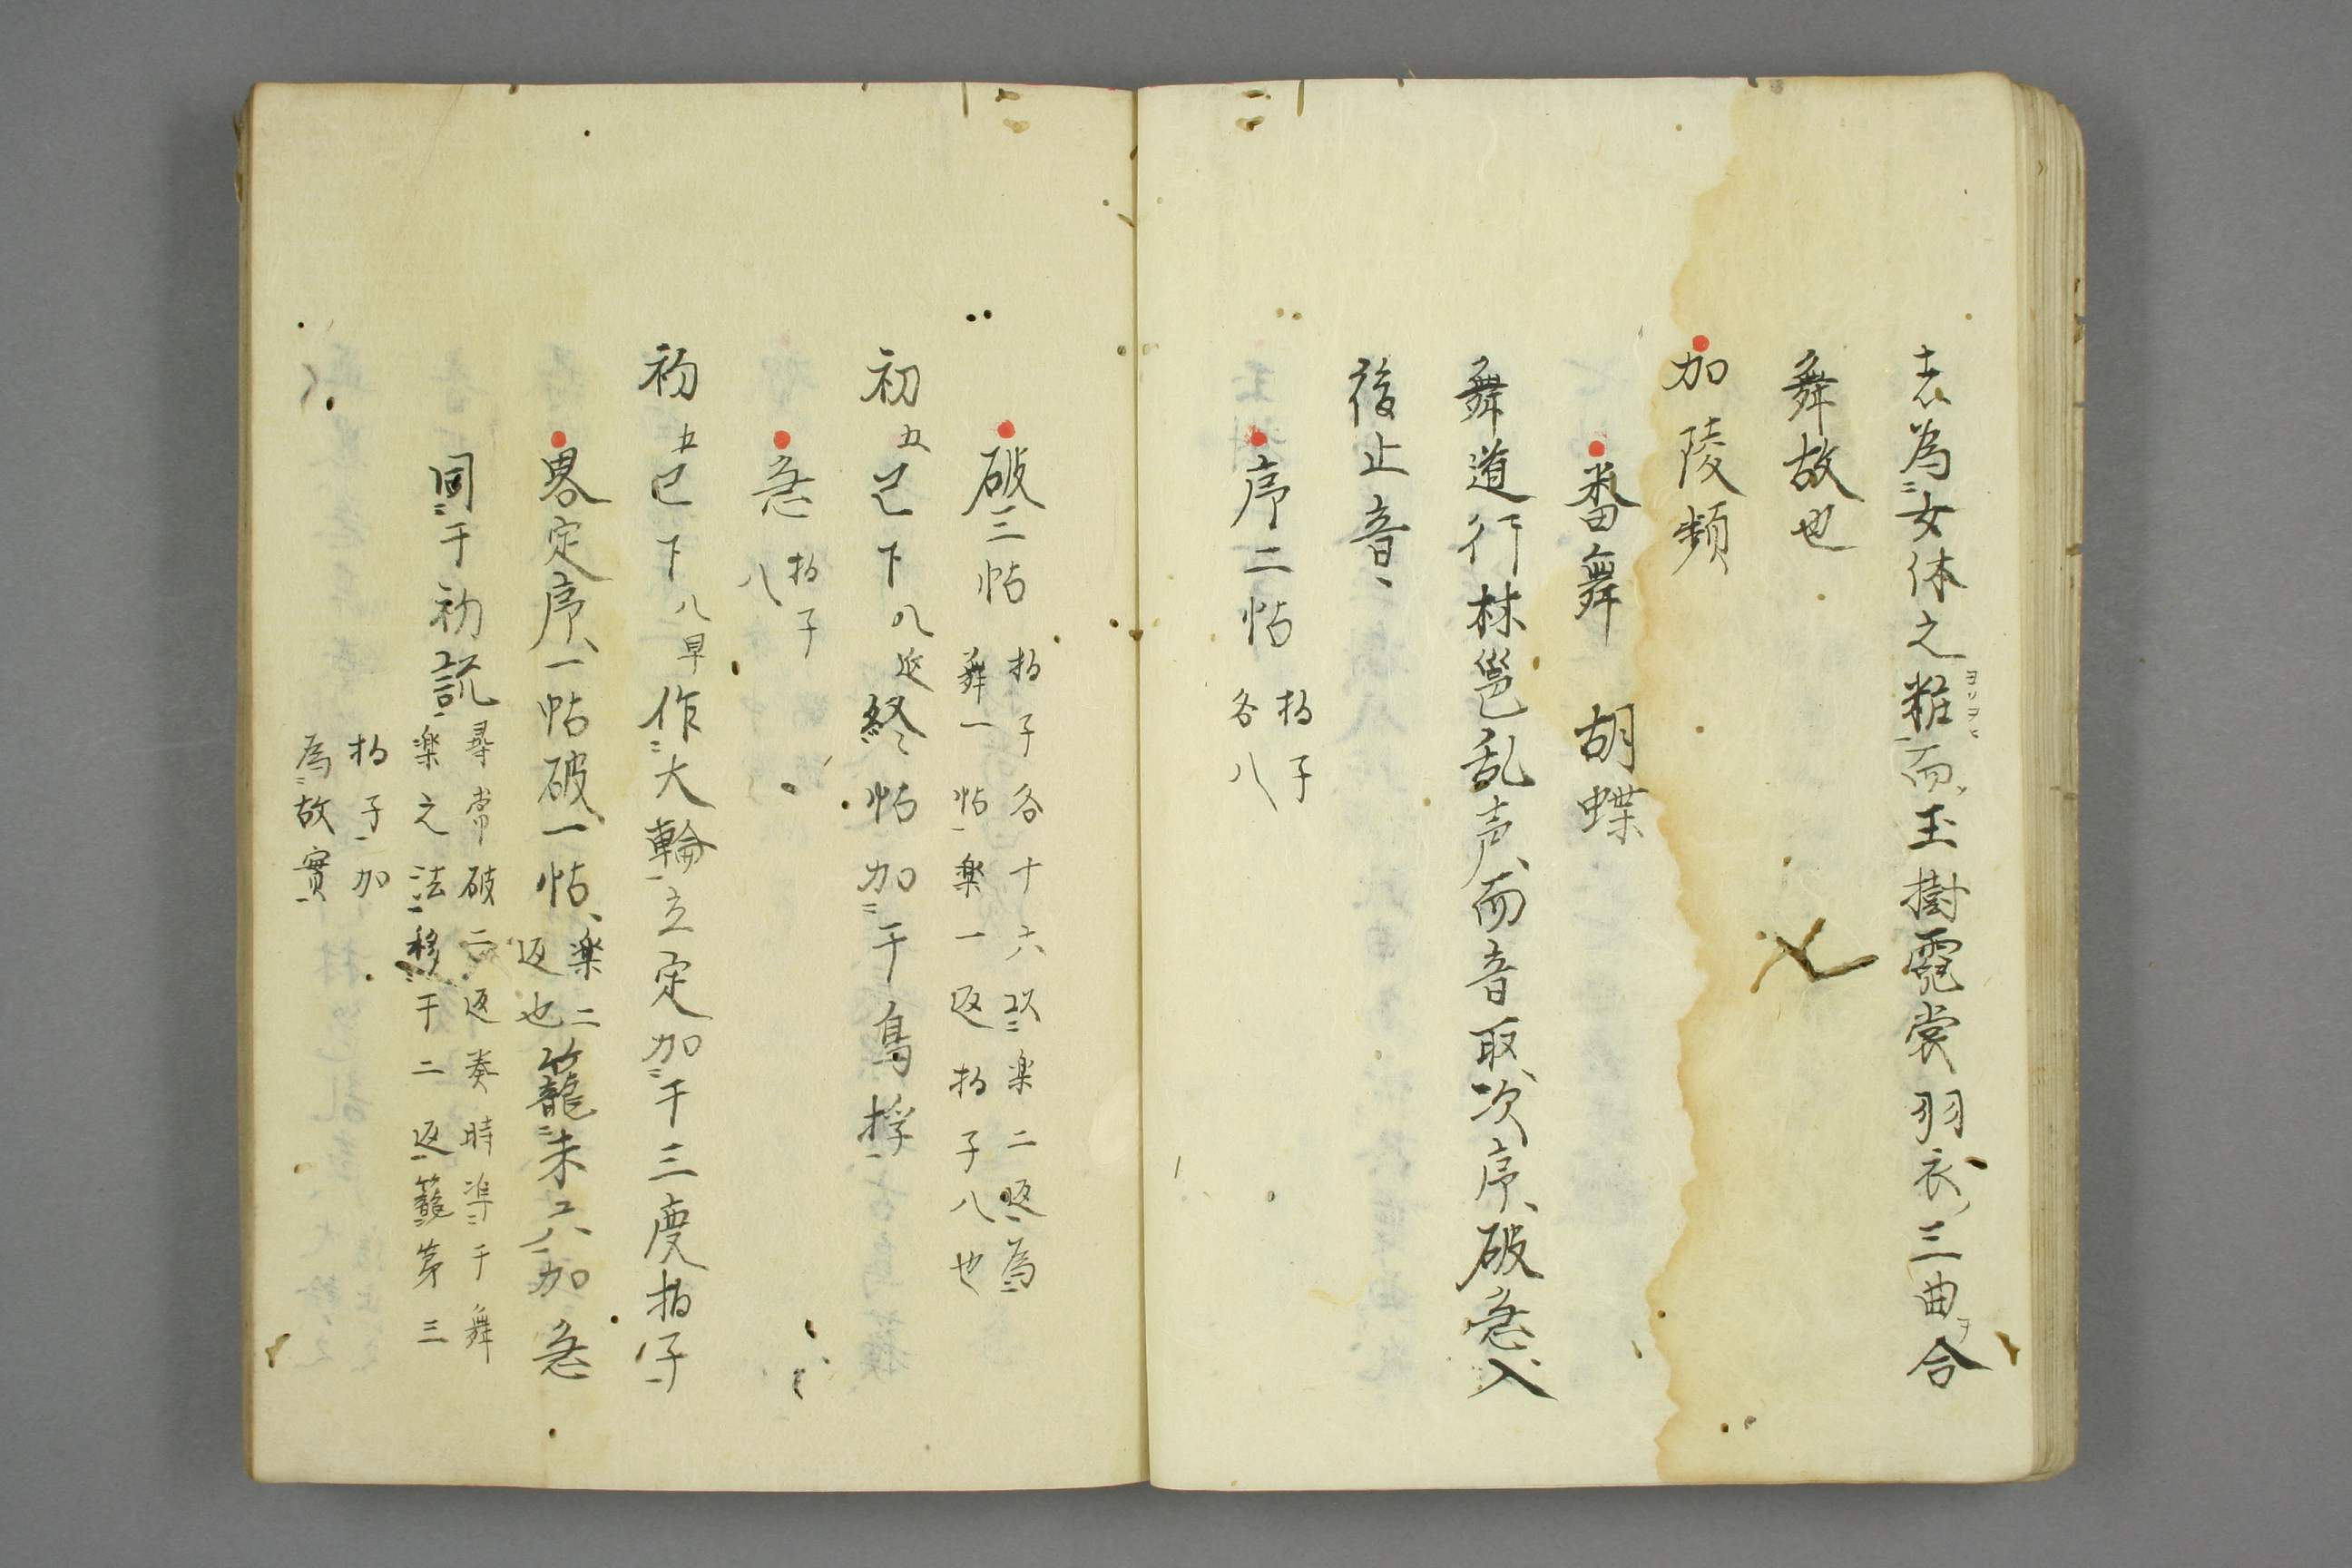 志為女体之粧而玉樹霓裳羽衣三曲合
ヨソヲヒ
ヲ
舞故也
加陵頻
番舞 胡蝶
舞道行林邕乱声而音取次序破急入
後止音
序二帖 拍子
各八
破三帖 拍子各十六以楽二返為
舞一帖楽一返拍子八也
初五已下八延終帖加于鳥捊
急 拍子
八
初五已下八早作大輪立定加于三度拍子
畧定序一帖破一帖楽二
返也籠朱六加急
同于初説 尋常破二返奏時準于舞
楽之法移于二返籠第三
拍子加
為故實